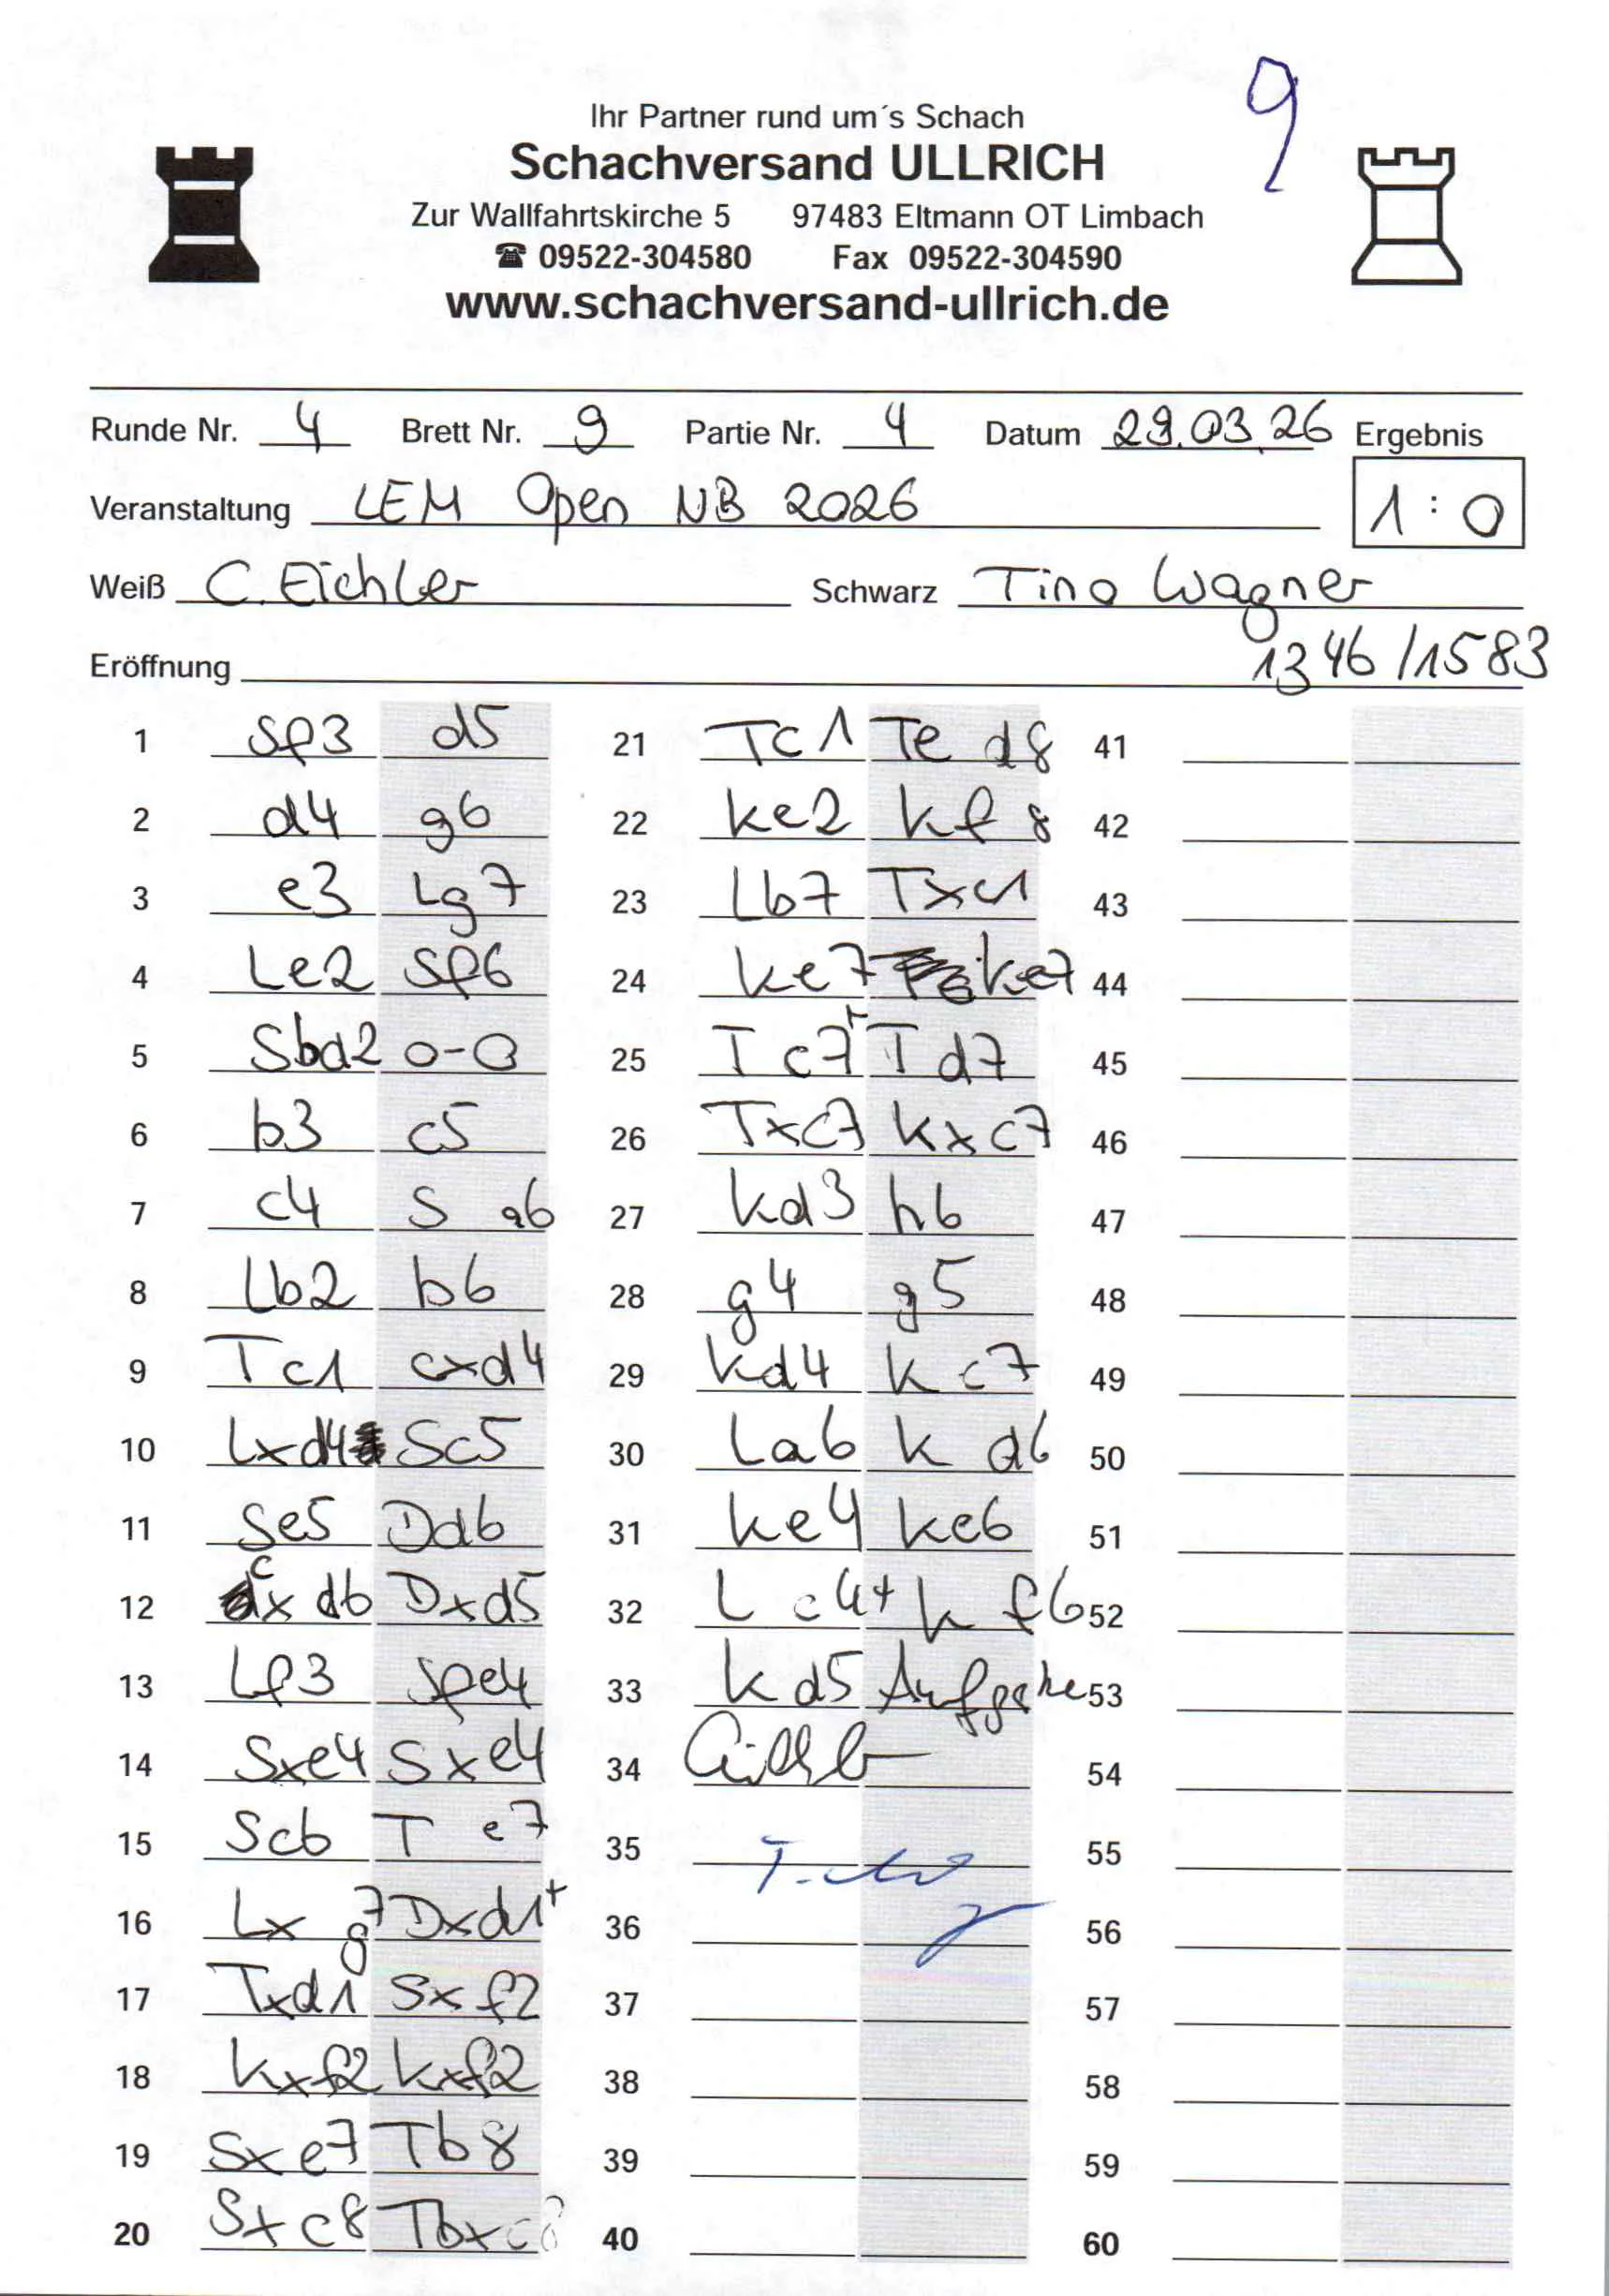 9
Ihr Partner rund um´s Schach
Schachversand ULLRICH
Zur Wallfahrtskirche 5 97483 Eltmann OT Limbach
☎ 09522-304580 Fax 09522-304590
www.schachversand-ullrich.de
Runde Nr. 4 Brett Nr. 9 Partie Nr. 4 Datum 29.03.26 Ergebnis
Veranstaltung LEM Open NB 2026 1 : 0
Weiß C. Eichler Schwarz Tino Wagner
Eröffnung 1346/1583
1 Sf3 d5 21 Tc1 Te d8 41
2 d4 g6 22 Ke2 Kf8 42
3 e3 Lg7 23 Lb7 Txc1 43
4 Le2 Sf6 24 Ke7 Ke7 44
5 Sbd2 0-0 25 Tc7+ Td7 45
6 b3 c5 26 Txc7 Kxc7 46
7 c4 S a6 27 Kd3 h6 47
8 Lb2 b6 28 g4 g5 48
9 Tc1 cxd4 29 Kd4 Kc7 49
10 Lxd4 Sc5 30 La6 K d6 50
11 Se5 Dd6 31 Ke4 Ke6 51
12 cx d6 Dxd5 32 L c4+ K f6 52
13 Lf3 Sfe4 33 K d5 Aufgabe 53
14 Sxe4 Sxe4 34 54
15 Sc6 T e7 35 55
16 Lx g7 Dxd1+ 36 56
17 Txd1 Sx f2 37 57
18 Kxf2 Kxf2 38 58
19 Sx e7 Tb8 39 59
20 Sx c8 Tbxc8 40 60